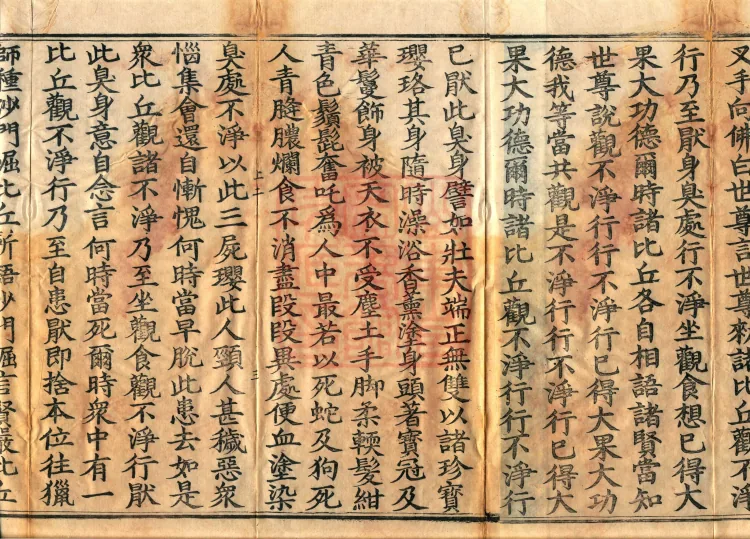 叉手向佛白世尊言世尊敕諸比丘觀不淨
行乃至厭身臭處行不淨坐觀食想已得大
果大功德爾時諸比丘各自相語諸賢當知
世尊說觀不淨行行不淨行已得大果大功
德我等當共觀是不淨行行不淨行已得大
果大功德爾時諸比丘觀不淨行行不淨行
已厭此臭身譬如壯夫端正無雙以諸珍寶
瓔珞其身隨時澡浴香薰塗身頭著寶冠及
華鬘飾身被天衣不受塵土手脚柔輭髮紺
青色鬚髭奮吒為人中最若以死蛇及狗死
人青膖膿爛食不消盡段段異處便血塗染
臭處不淨以此三屍瓔此人頸人甚穢惡衆
惱集會還自慚愧何時當早脫此患去如是
衆比丘觀諸不淨乃至坐觀食觀不淨行厭
此臭身意自念言何時當死爾時衆中有一
比丘觀不淨行乃至自患厭即捨本位往獵
師種沙門崛比丘所語沙門崛言賢嚴比丘